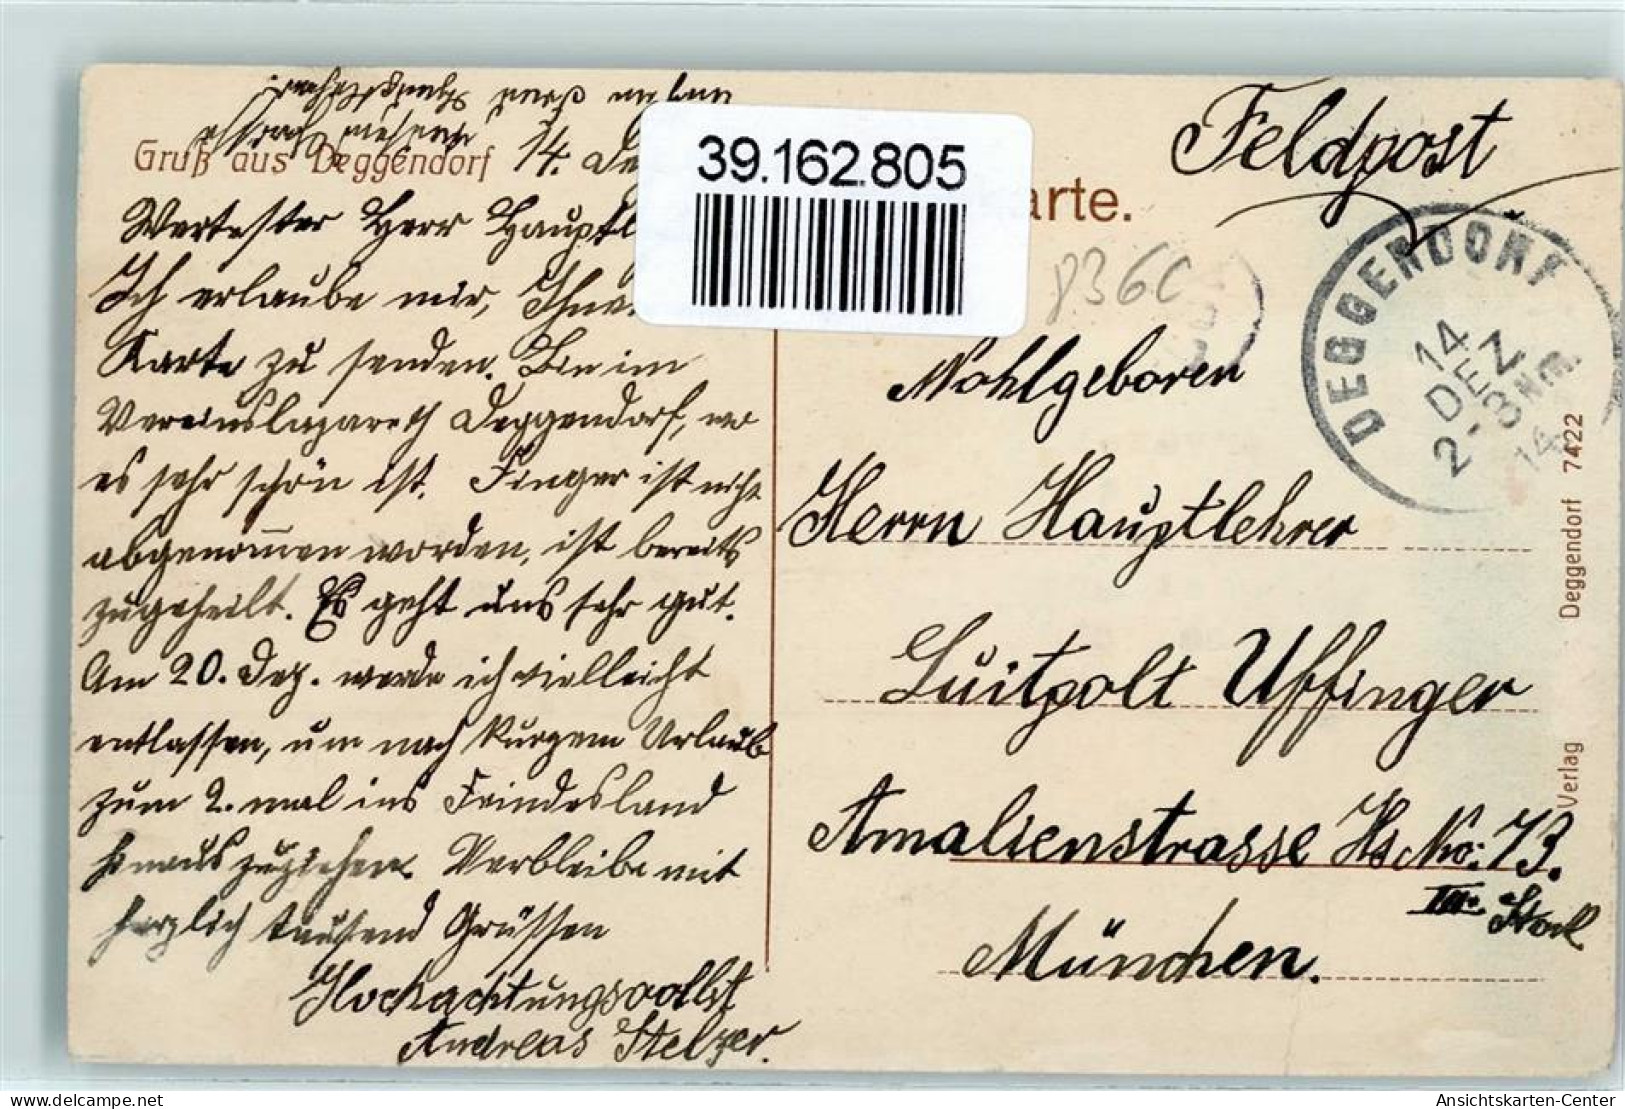 Gruß aus Deggendorf 14. De
39.162.805
arte.
Feldpost
Wertester Herr Hauptl
Ich erlaube mir, Ihne
Karte zu senden. Bin im
Vereinslazareth Deggendorf, wo
es sehr schön ist. Finger ist nicht
abgenom̅en worden, ist bereits
zugeheilt. Es geht uns sehr gut.
Am 20. Dez. werde ich vielleicht
entlassen, um nach kurzem Urlaub
zum 2. mal ins Feindesland
hinauszuziehen. Verbleibe mit
herzlich tausend Grüssen
Hochachtungsvollst
Andreas Stelzer.
836C
DEGGENDORF
14
DEZ
2-3 Nm.
14
Wohlgeboren
Herrn Hauptlehrer
Luitpolt Uffinger
Amalienstrasse Hs No: 73.
III. Stock
München.
Verlag Deggendorf 7422
delcampe.net
Ansichtskarten-Center